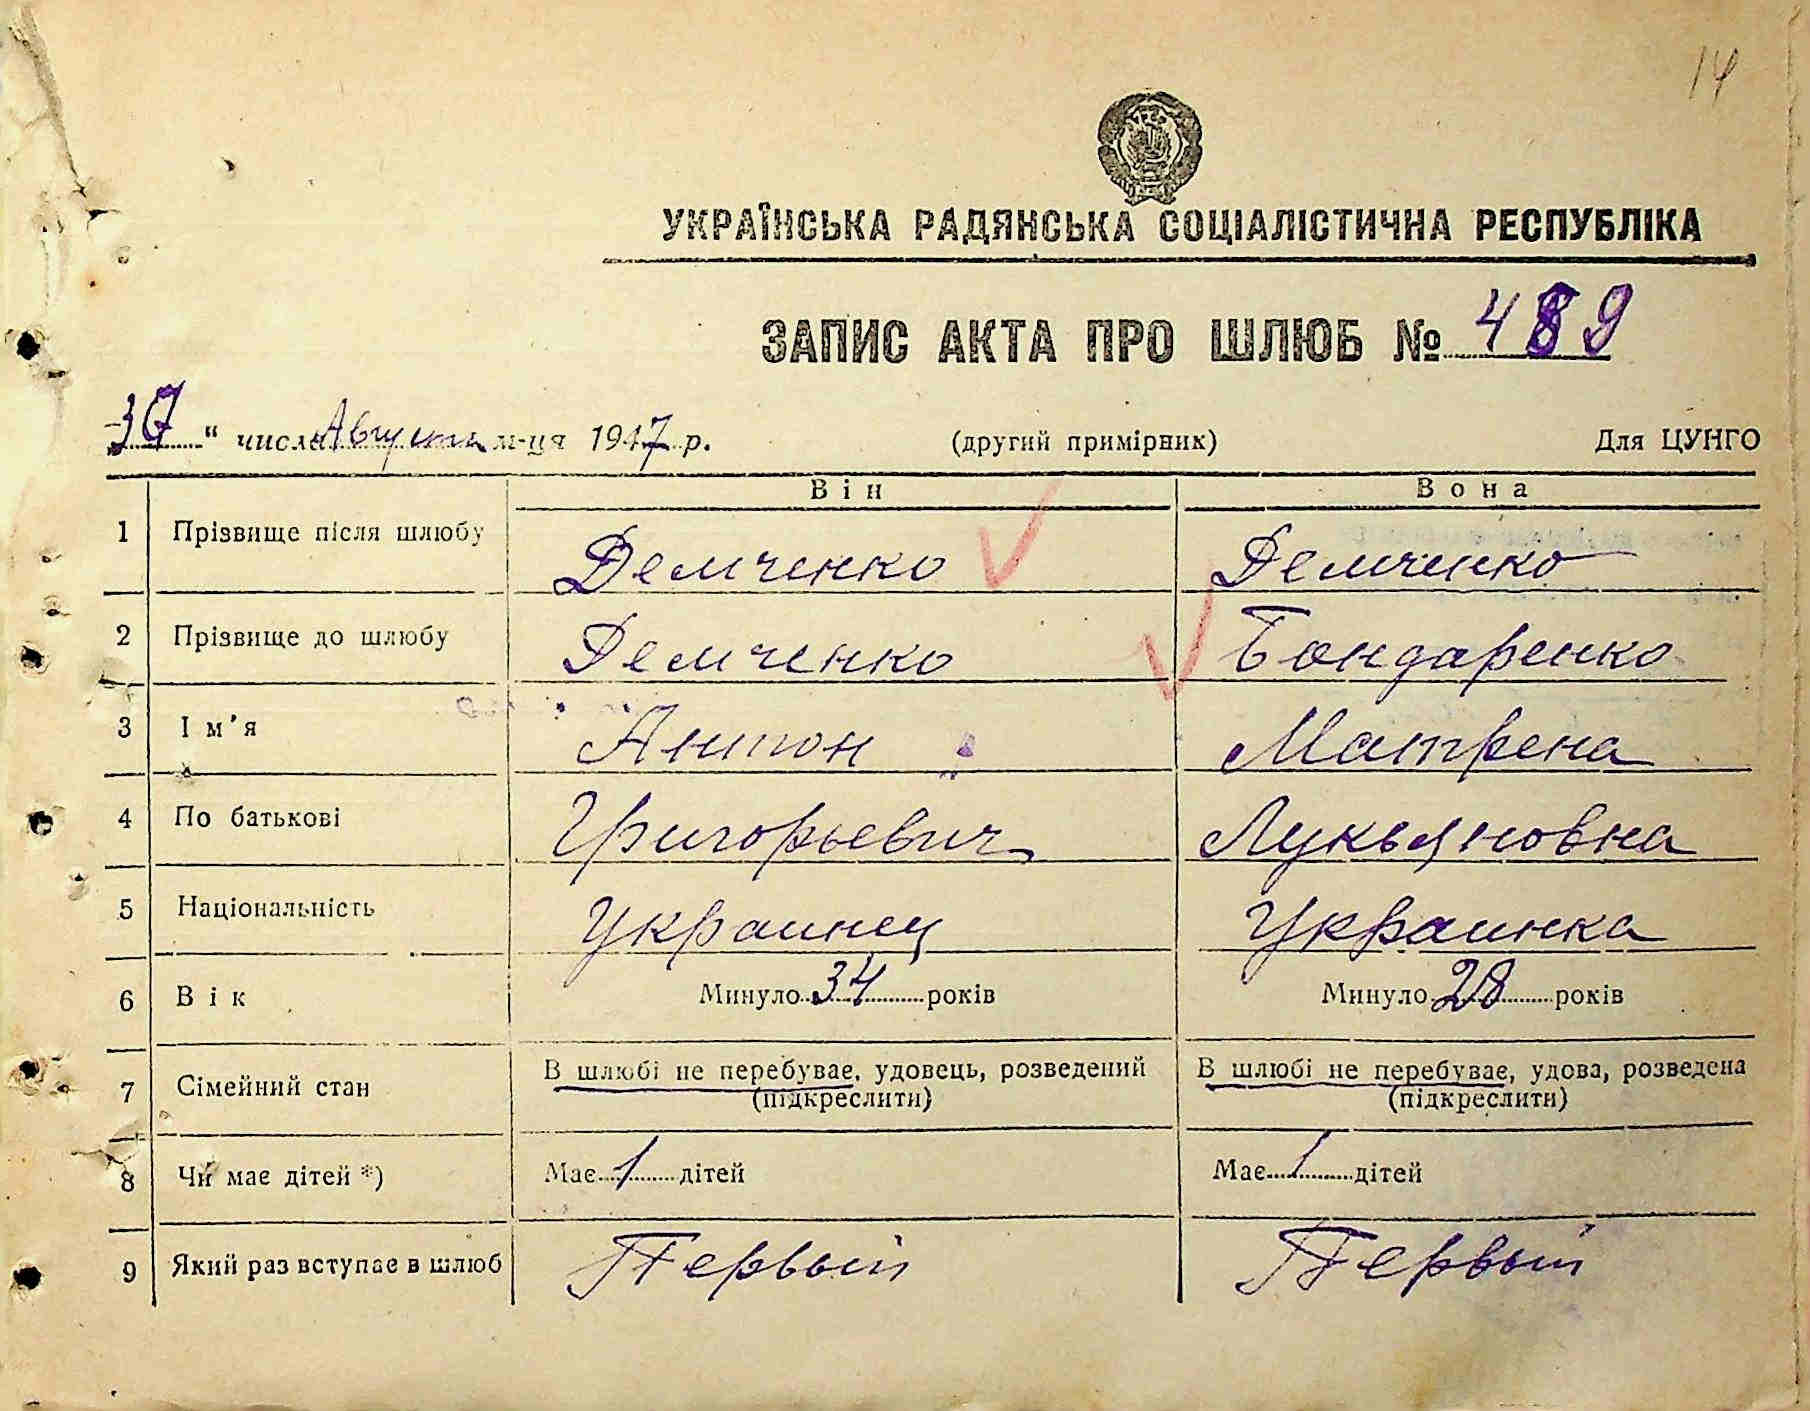 14
УКРАЇНСЬКА РАДЯНСЬКА СОЦІАЛІСТИЧНА РЕСПУБЛІКА
ЗАПИС АКТА ПРО ШЛЮБ № 489
30 " числа Августа м-ця 1947 р. (другий примірник) Для ЦУНГО
Він Вона
1 Прізвище після шлюбу Демченко Демченко
2 Прізвище до шлюбу Демченко Бондаренко
3 Ім'я Антон Матрена
4 По батькові Григорьевич Лукьяновна
5 Національність Украинец Украинка
6 Вік Минуло 34 років Минуло 28 років
7 Сімейний стан В шлюбі не перебуває, удовець, розведений (підкреслити) В шлюбі не перебуває, удова, розведена (підкреслити)
8 Чи має дітей *) Має 1 дітей Має 1 дітей
9 Який раз вступає в шлюб Первый Первый